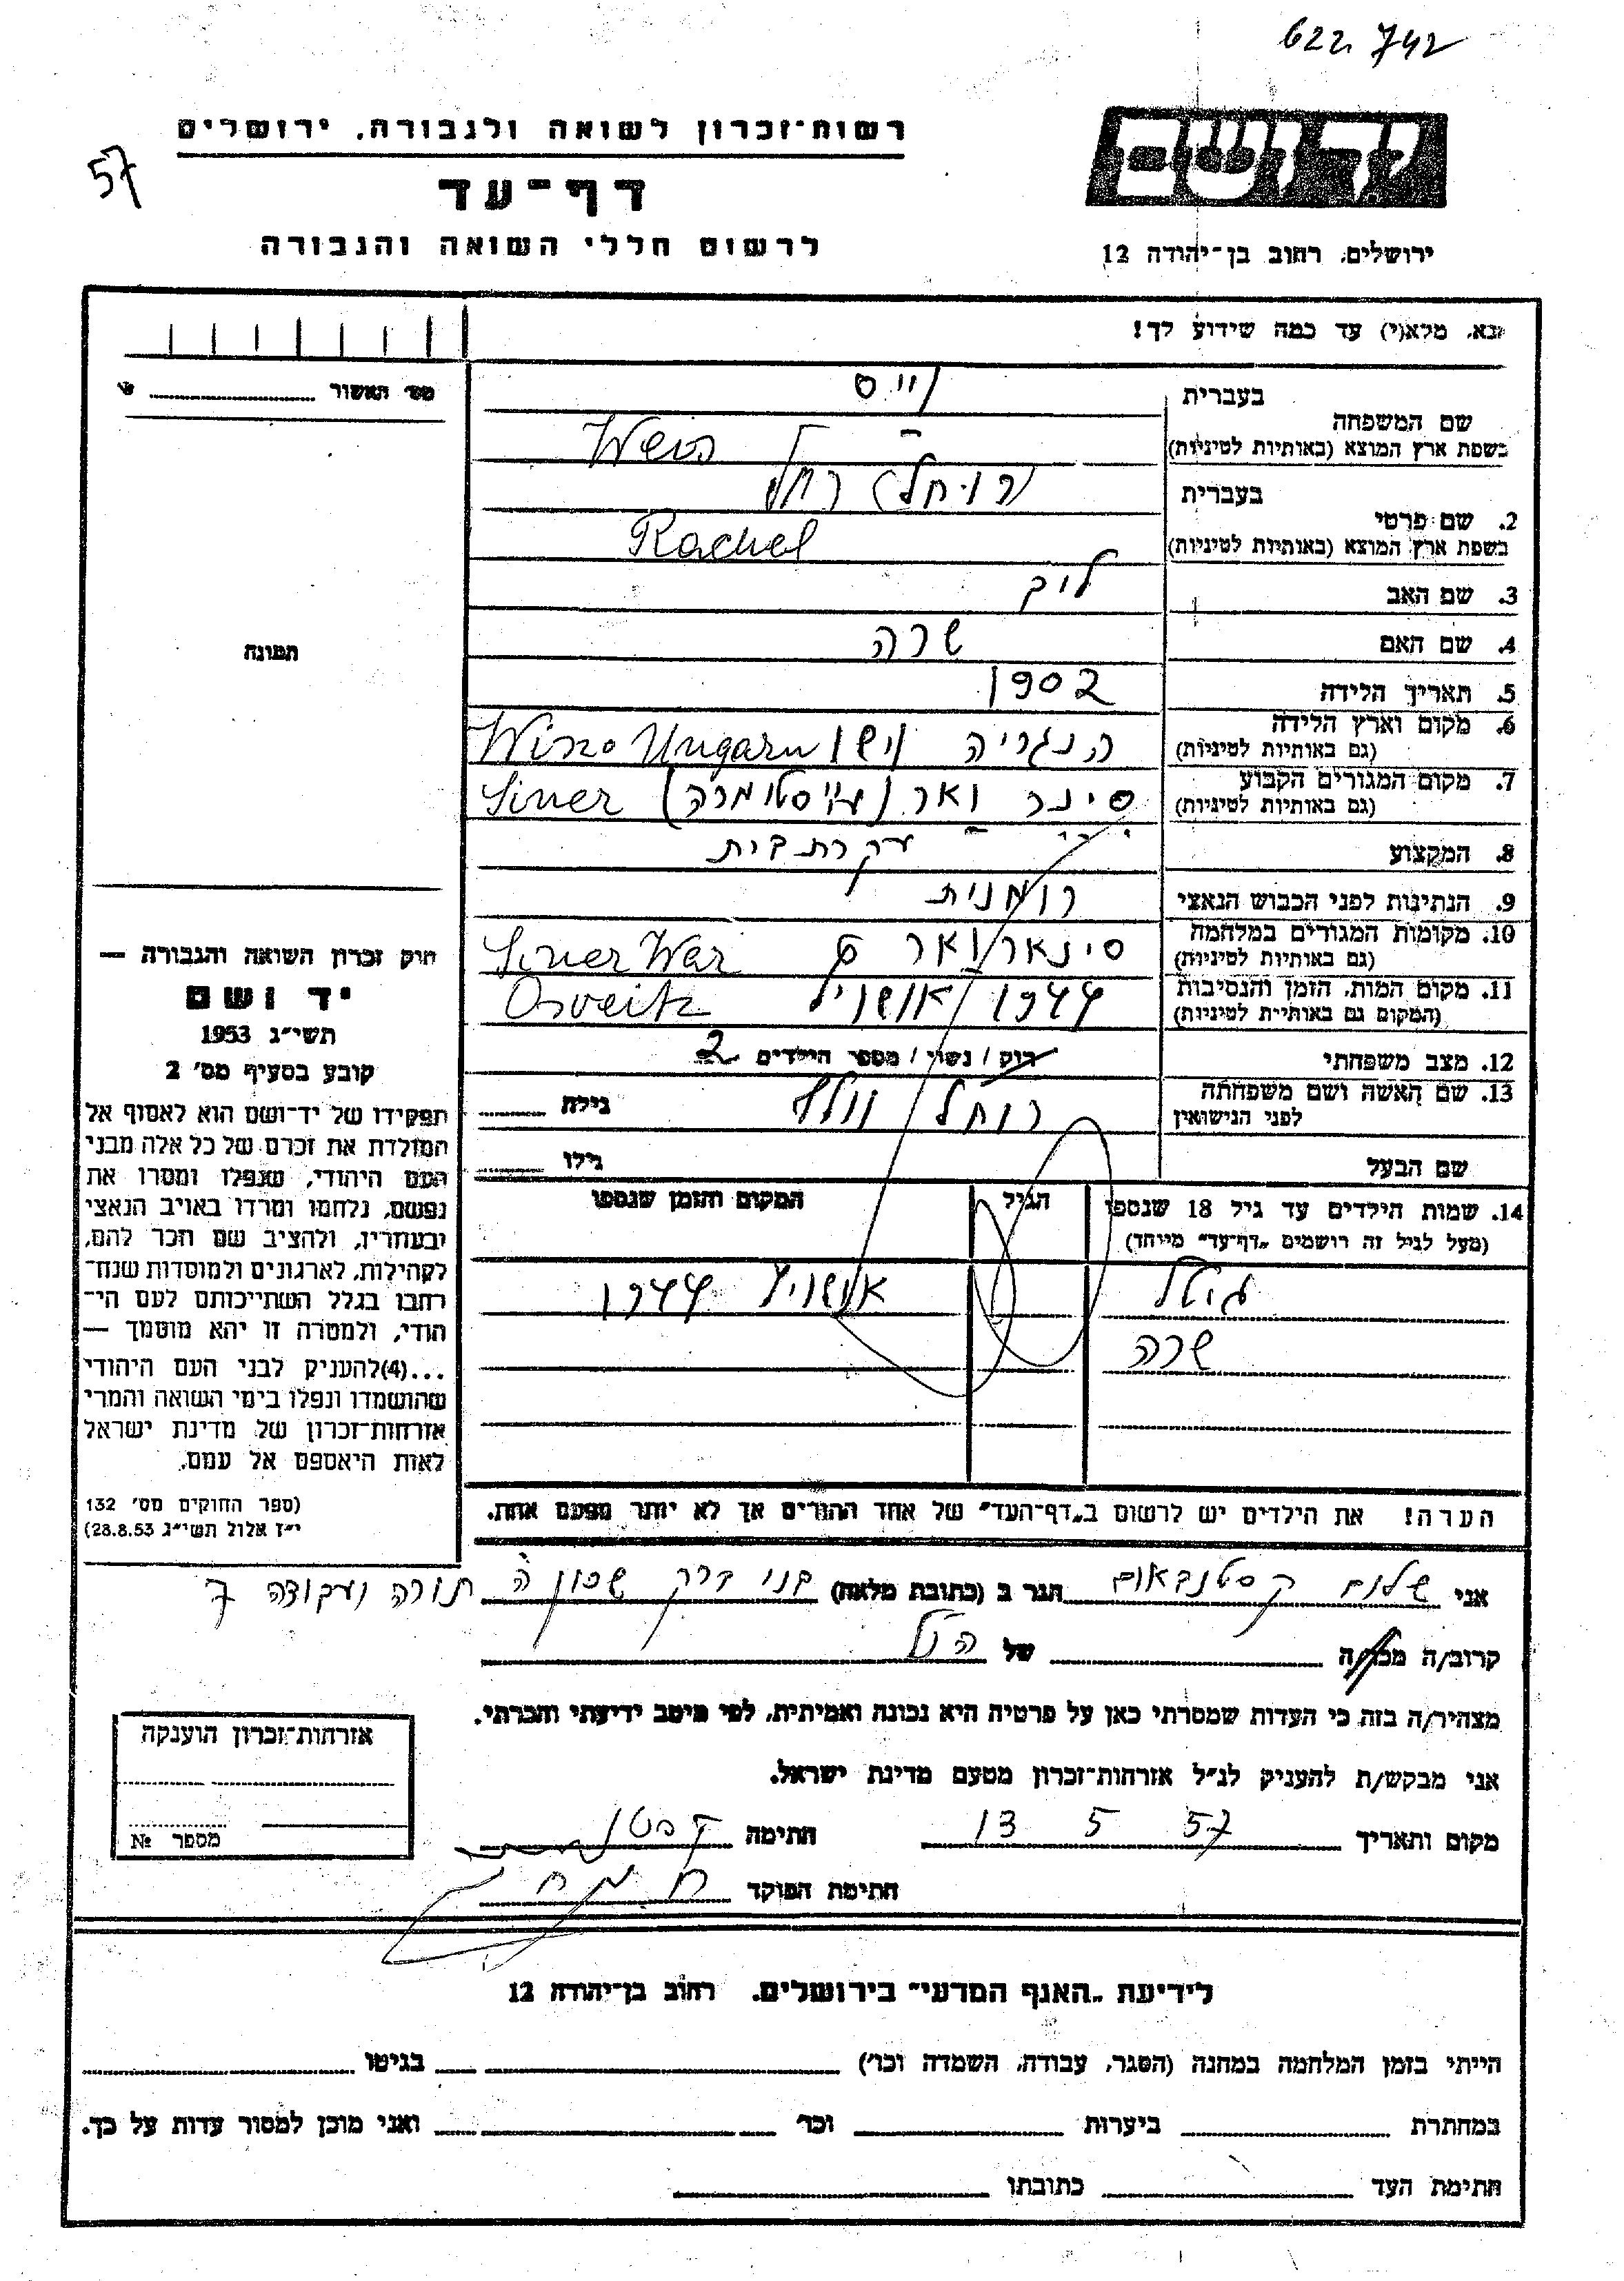 622 742
רשות־זכרון לשואה ולגבורה, ירושלים
57
דף־עד
לרשום חללי השואה והגבורה
ידושם
ירושלים, רחוב בן־יהודה 12
נא, מלא(י) עד כמה שידוע לך!
מס׳ האשור
שם המשפחה
בעברית
וייס
בשפת ארץ המוצא (באותיות לטיניות)
2. שם פרטי
בעברית
רוחל רחל
בשפת ארץ המוצא (באותיות לטיניות)
Rachel
3. שם האב
4. שם האם שרה
5. תאריך הלידה 1902
6. מקום וארץ הלידה
(גם באותיות לטיניות)
הנגריה
7. מקום המגורים הקבוע
(גם באותיות לטיניות)
סינר וואר
8. המקצוע עקרת בית
9. הנתינות לפני הכבוש הנאצי רומנית
10. מקומות המגורים במלחמה
(גם באותיות לטיניות)
סינאר וואר Siner War
11. מקום המות, הזמן והנסיבות
(המקום גם באותיות לטיניות)
1944 אושויץ Osveitz
12. מצב משפחתי רוק / נשוי / מספר הילדים 2
13. שם האשה ושם משפחתה
לפני הנישואין
רוחל וולף
גילה
שם הבעל
גילו
14. שמות הילדים עד גיל 18 שנספו
(מעל לגיל זה רושמים „דף־עד” מייחד)
הגיל
המקום והזמן שנספו
גיטל
אושויץ 1944
שרה
הערה! את הילדים יש לרשום ב„דף־העד” של אחד ההורים אך לא יותר מפעם אחת.
תמונה
חוק זכרון השואה והגבורה —
יד ושם
תשי״ג 1953
קובע בסעיף מס׳ 2
תפקידו של יד־ושם הוא לאסוף אל
המולדת את זכרם של כל אלה מבני
העם היהודי, שנפלו ומסרו את
נפשם, נלחמו ומרדו באויב הנאצי
ובעוזריו, ולהציב שם וזכר להם,
לקהילות, לארגונים ולמוסדות שנח־
רבו בגלל השתייכותם לעם הי־
הודי, ולמטרה זו יהא מוסמך —
...(4)להעניק לבני העם היהודי
שהושמדו ונפלו בימי השואה והמרי
אזרחות־זכרון של מדינת ישראל
לאות היאספם אל עמם.
(ספר החוקים מס׳ 132
י״ז אלול תשי״ג 28.8.53)
אני שלום קסטנבאום הגר ב (כתובת מלאה) בני ברק שכון ה תורה ועבודה 7
קרוב/ה מכר/ה של הנ״ל
מצהיר/ה בזה כי העדות שמסרתי כאן על פרטיה היא נכונה ואמיתית, לפי מיטב ידיעתי והכרתי.
אני מבקש/ת להעניק לנ״ל אזרחות־זכרון מטעם מדינת ישראל.
מקום ותאריך 13 5 57 חתימה
חתימת הפוקד
אזרחות־זכרון הוענקה
מספר №
לידיעת „האגף המדעי” בירושלים, רחוב בן־יהודה 12
הייתי בזמן המלחמה במחנה (הסגר, עבודה, השמדה וכו׳) בגיטו
במחתרת ביערות וכו׳ ואני מוכן למסור עדות על כך.
חתימת העד כתובתו